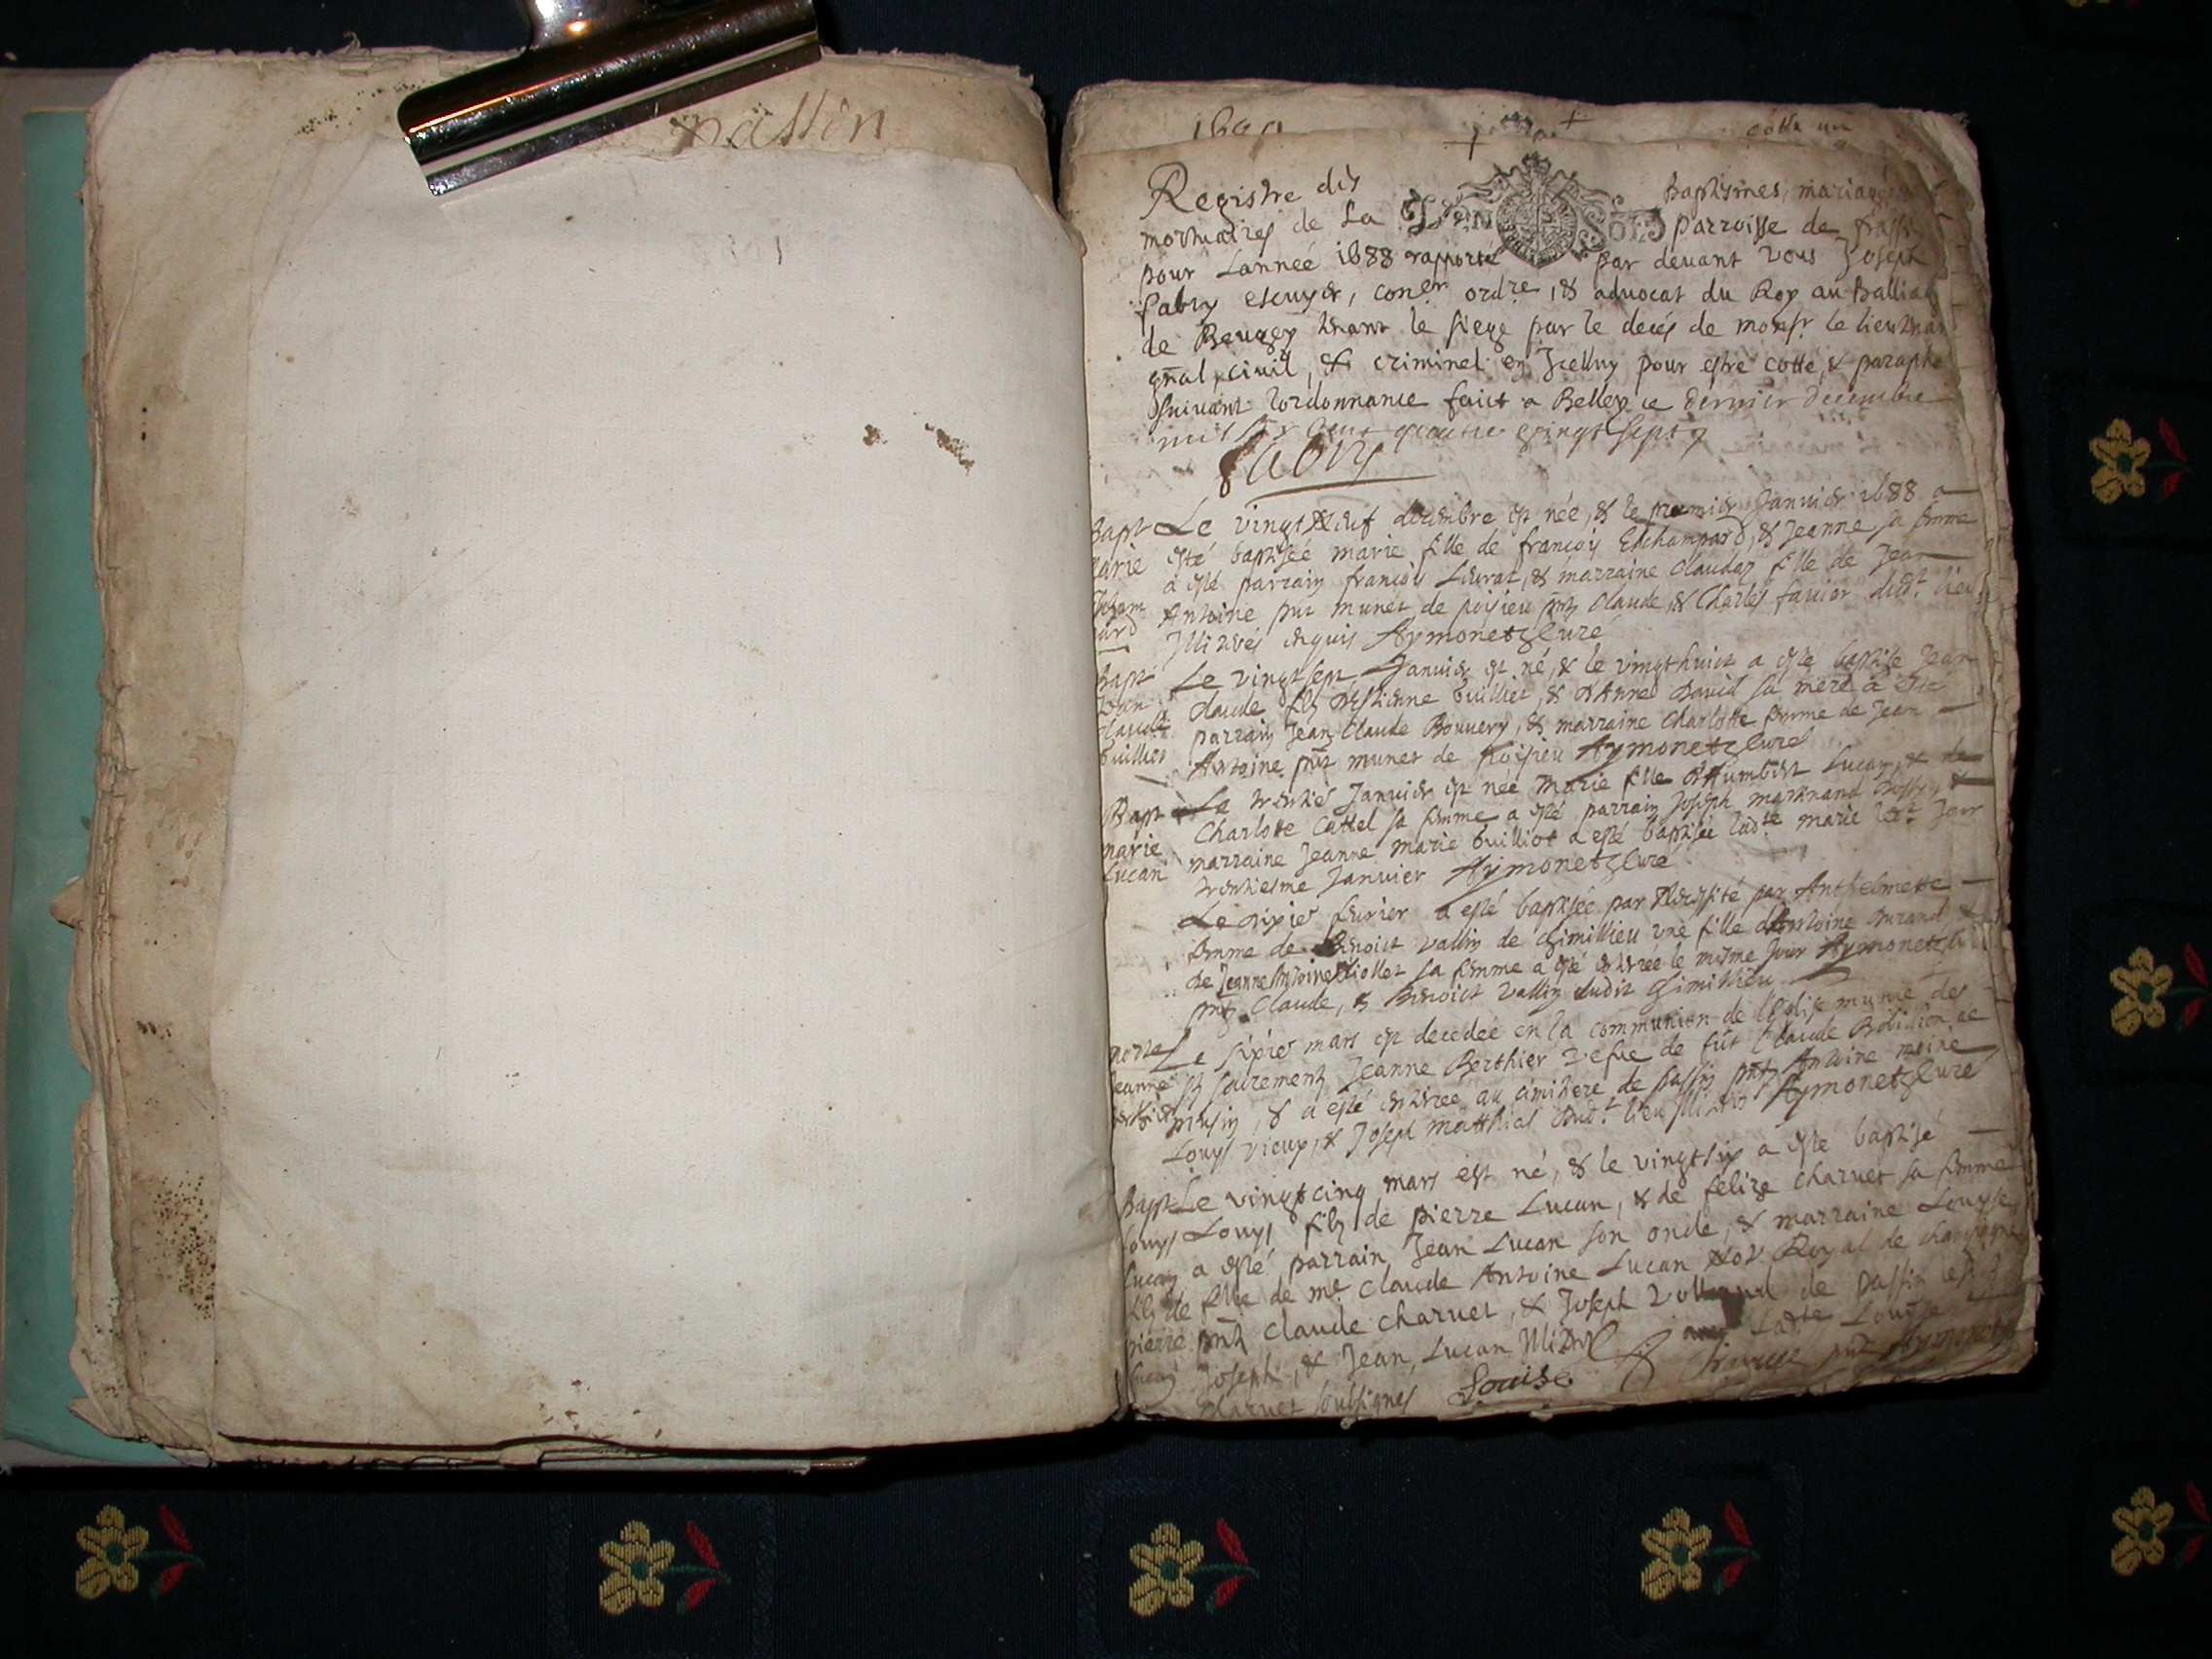 passin
cotte un
Registre des Baptismes, mariages
mortuaires de La parroisse de passin
pour Lanneé 1688 rapporté par devant vous Joseph
fabry escuyer, coner ordre, & advocat du Roy au Balliage
de Beugey tenant le siege par le decés de monsr le lieutenant
gnal, civil, & criminel en Icelluy pour estre cotté, & paraphé
suivant lordonnance faict a Belley ce dernier decembre
mil six cent quatre vingt sept
fabry
Bapt Le vingt neuf decembre est née, & le premier Janvier 1688 a
marie esté baptisée marie fille de françois Eschampard, & Jeanne sa femme
a esté parrain françois Livrat, & marraine Claudaz fille de Jean
ard Antoine put munet de poisieu pnts Claude, & Charles favier dudt lieu
Illitrés enquis Aymonetz Curé
Bapt Le vingt sept Janvier est né, & le vingt huict a esté baptisé Jean
Jean Claude fils destienne Guillier, & dAnne David sa mere a esté
Claude parrain Jean Claude Bouvery, & marraine Charlotte femme de Jean
Guillier Antoine put munet de Poisieu Aymonetz Curé
Bapt Le trentié Janvier est née Marie fille dHumbert Lucan, & de
marie Charlotte Cattel sa femme a esté parrain Joseph martinand &
Lucan marraine Jeanne marie Guilliot a esté baptisée ladte marie ledt Jour
trentiesme Janvier Aymonetz Curé
Le sixié fevrier a esté baptisée par necessité par Anthelmette
femme de Benoict vallin de Gimillieu une fille dAntoine Durand &
de Jeanne Antoine Niollet sa femme a esté enterrée le mesme Jour Aymonetz
pnts Claude, & Benoict Vallin dudit Gimillieu
morte Le sixié mars est decedée en la communion de leglise munie des
Jeanne sts sacrements Jeanne Berthier vefve de fût Claude Bolillion de
Berthier prusin, & a esté enterrée au cimitiere de passin pnts Antoine moine
Louys vieux, & Joseph matthias dudt lieu Illitrés Aymonetz Curé
Bapt Le vingt cinq mars est né, & le vingt six a esté baptisé
Louys Louys fils de pierre Lucan, & de felize charvet sa femme
Lucan a esté parrain Jean Lucan son oncle, & marraine Louyse
fils de fille de me Claude Antoine Lucan Not Royal de champagne
pierre pnts Claude charvet, & Joseph Vollerand de Passin
Lucan Joseph, & Jean Lucan Illitrés ladte Louise
charvet soubsignés Louise Aymonetz